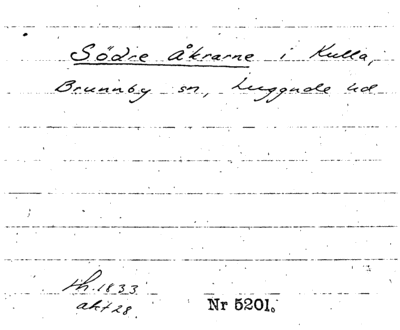 Södre Åkrarne i Kulla,
Brunnby sn, Luggude hd
th. 1833
akt 28.
Nr 5201.